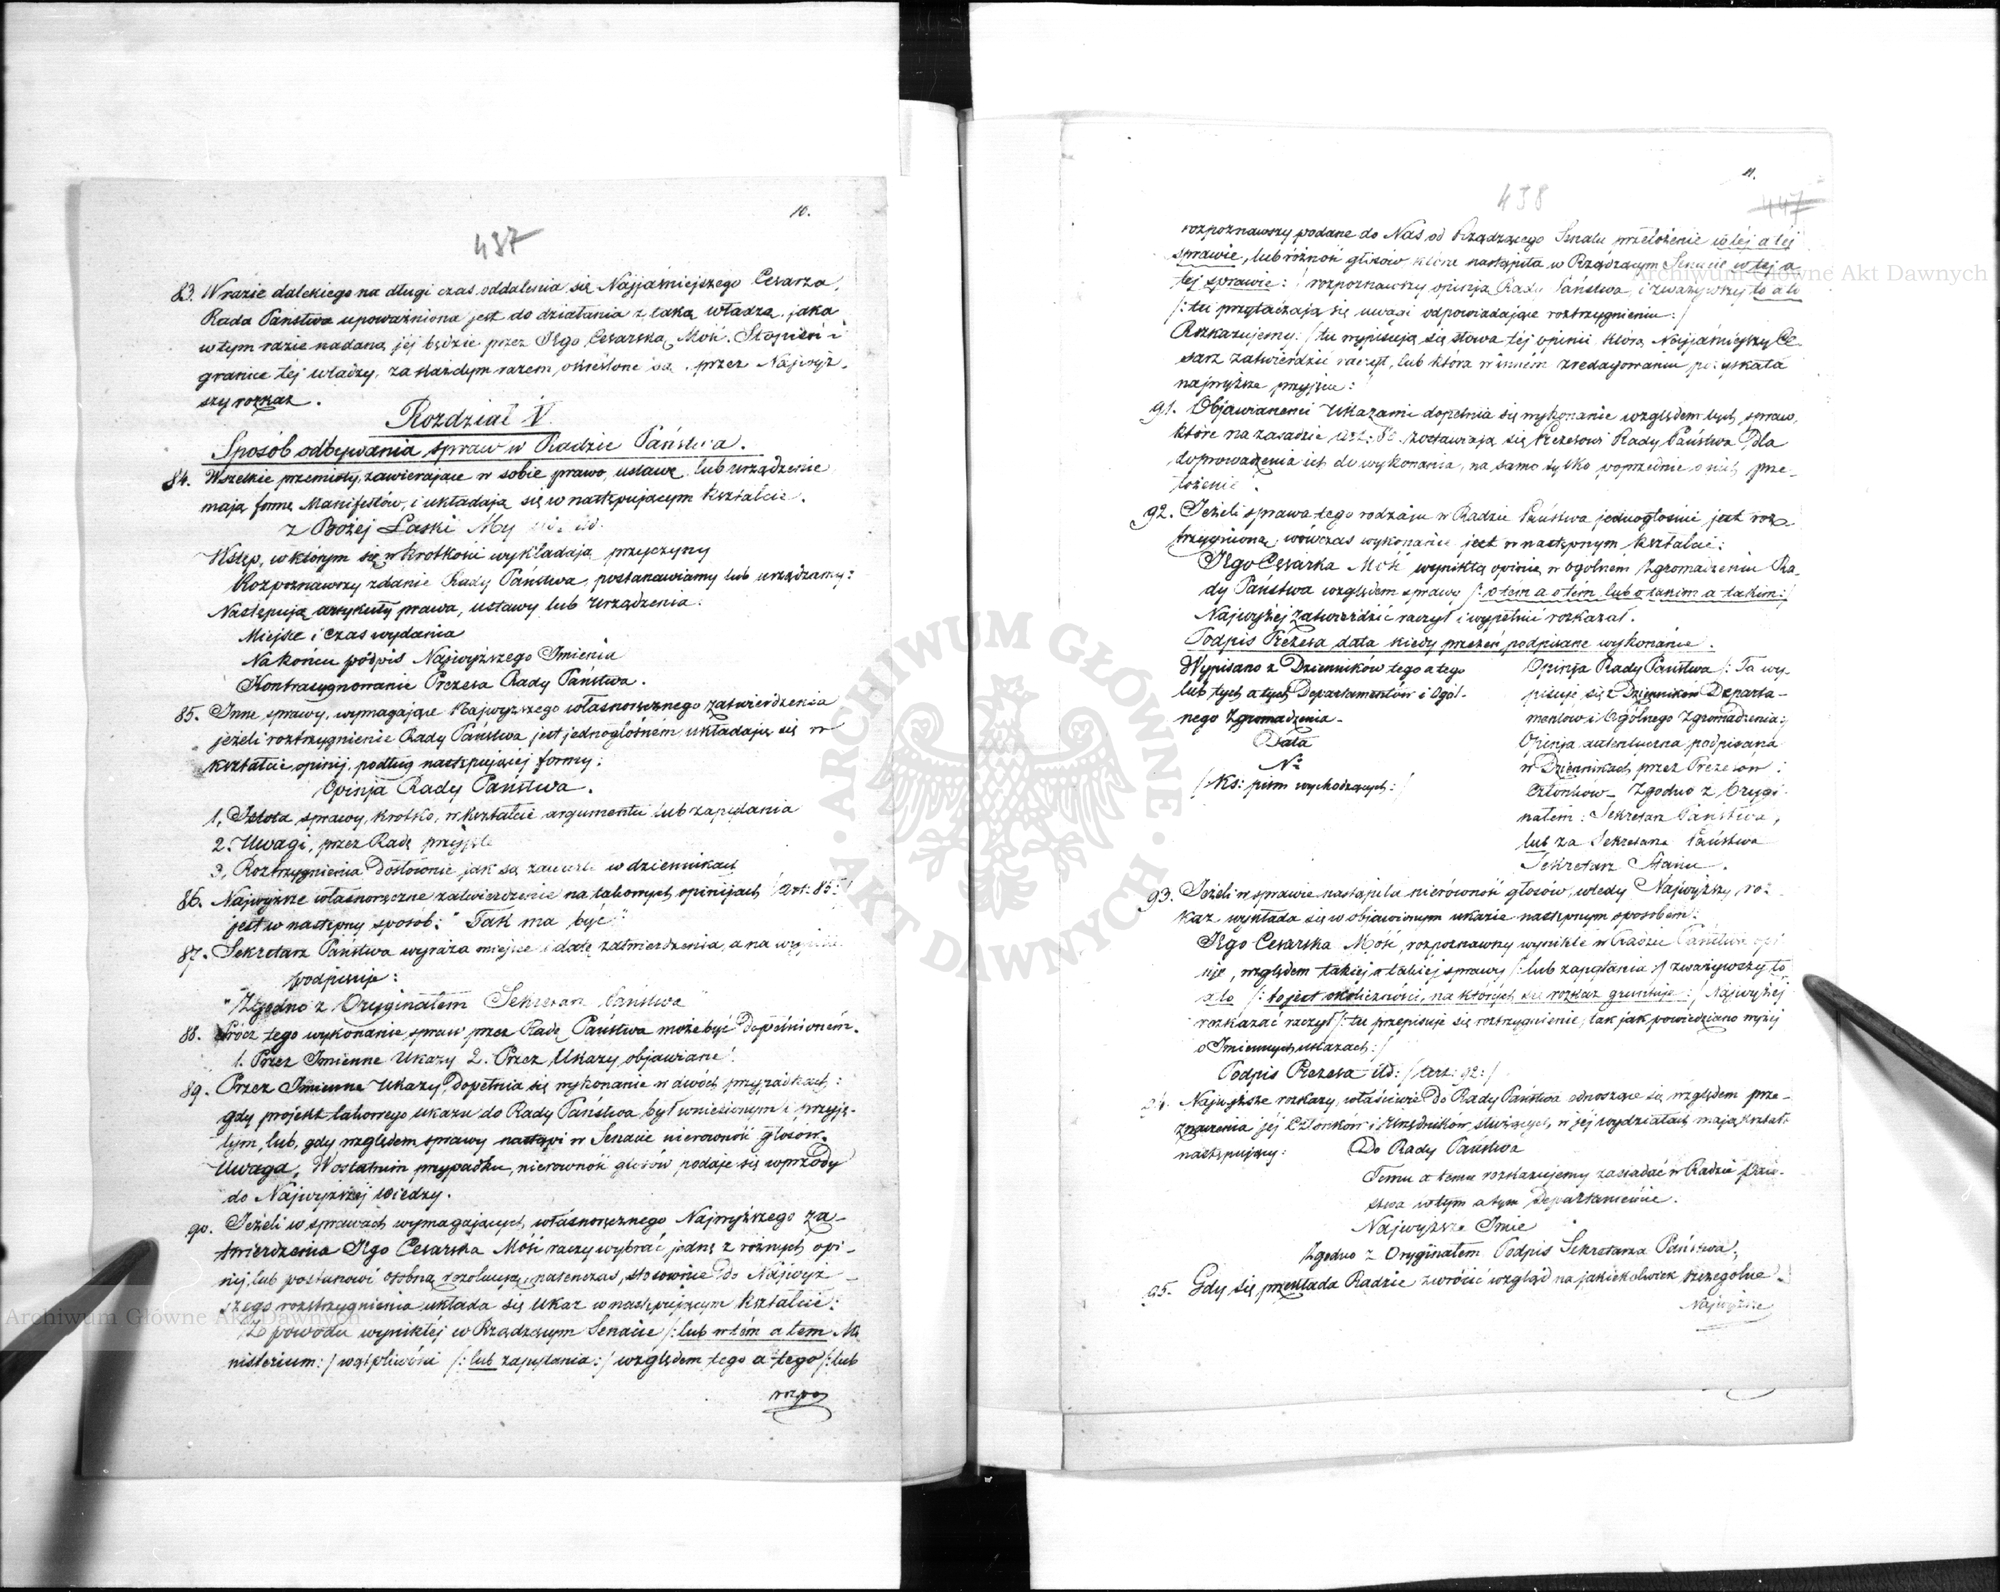 10.
437
83. W razie dalekiego na długi czas oddalenia się Najjaśniejszego Cesarza,
Rada Państwa upoważniona jest do działania z taką władzą, jaka
w tym razie nadaną jej będzie przez Jego Cesarską Mość. Stopień i
granice tej władzy, za każdym razem, określone są, przez Najwyż-
szy rozkaz.
Rozdział V.
Sposób odbywania spraw w Radzie Państwa.
84. Wszelkie przemioty, zawierające w sobie prawo, ustawę lub urządzenie
mają formę Manifestów, i układają się w następującym kształcie.
z Bożej Łaski My
Wstęp, w którym się w krótkości wykładają przyczyny
Rozpoznawszy zdanie Rady Państwa, postanawiamy lub urządzamy:
Następują artykuły prawa, ustawy lub Urządzenia:
Miejsce i czas wydania
Na końcu podpis Najwyższego Imienia
Kontrasygnowanie Prezesa Rady Państwa.
85. Inne sprawy, wymagające Najwyższego własnoręcznego zatwierdzenia
jeżeli roztrzygnienie Rady Państwa jest jednogłośném układają się w
kształcie opinij, podług następującej formy:
Opinja Rady Państwa.
1, Istota sprawy, krótko, w kształcie argumentu lub zapytania
2. Uwagi, przez Radę przyjęte
3, Roztrzygnienia Dosłownie jak są zawarte w dziennikach
86. Najwyższe własnoręczne zatwierdzenie na takowych opinijach /Art: 85:/
jest w następny sposób: "Tak ma być"
87. Sekretarz Państwa wyraża miejsce i datę zatwierdzenia, a na
podpisuje:
"Zgodno z Oryginałem Sekretarz Państwa"
88. Prócz tego wykonanie spraw przez Radę Państwa może być dopełnioném.
1. Przez Imienne Ukazy 2. Przez Ukazy objawiane.
89. Przez Imienne Ukazy, Dopełnia się wykonanie w dwóch przypadkach:
gdy projekt takowego ukazu do Rady Państwa był wniesionym i przyję-
tym, lub, gdy względem sprawy nastąpi w Senacie nierówność głosów.
Uwaga, W ostatnim przypadku, nierówność głosów podaje się wprzódy
do Najwyższej wiedzy.
90. Jeżeli w sprawach wymagających własnoręcznego Najwyższego za-
twierdzenia Jego Cesarska Mość raczy wybrać jedną z różnych opi-
nij, lub postanowi osobną rezolucję, natenczas, stosownie do Najwyż-
szego roztrzygnienia układa się Ukaz w następującym kształcie:
Z powodu wynikłéj w Rządzącym Senacie /: lub w tém a tem Mi
nisterium:/ wątpliwości /: lub zapytania:/ względem tego a tego /: lub
rozpo
11.
438
447
rozpoznawszy podane do Nas od Rządzącego Senatu przełożenie w téj a téj
sprawie, lub różność głosów które nastąpiła w Rządzącym Senacie w tej a
tej sprawie: rozpoznawszy opinją Rady Państwa, i zważywszy to a to
/: tu przytaczają się uwagi odpowiadające roztrzygnieniu:/
Rozkazujemy: /tu wypisują się słowa tej opinii którą Najjaśniejszy Ce-
sarz zatwierdzić raczył, lub która w inném zredagowaniu pozyskała
najwyższe przyjęcie:
91. Objawianemi Ukazami dopełnia się wykonanie względem tych, spraw,
które na zasadzie Art: zostawiają się Prezesowi Rady Państwa Dla
doprowadzenia ich do wykonania, na samo tylko poprzednie o nich prze-
łożenie.
92. Jeżeli sprawa tego rodzaju w Radzie Państwa jednogłośnie jest roz-
trzygnioną, wówczas wykonanie jest w następnym kształcie:
Jego Cesarska Mość wynikłą opinię w Ogólnem Zgromadzeniu Ra-
dy Państwa względem sprawy /: o tém a o tém, lub o takim a takim:/
Najwyżéj Zatwierdzić raczył i wypełnić rozkazał.
Podpis Prezesa data kiedy przezeń podpisane wykonanie.
Wypisano z Dzienników tego a tego
lub tych a tych Departamentów i Ogól-
nego Zgromadzenia.
Data
No
/ks: pism wychodzących:/
Opinja Rady Państwa /: Ta wy-
pisuje się z Dzienników Departa-
mentów i Ogólnego Zgromadzenia:
Opinja autentyczna podpisana
w Dziennikach przez Prezesów i
Członków – Zgodno z Orygi-
nałem: Sekretarz Państwa,
lub za Sekretarza Państwa
Sekretarz Stanu.
93. Jeżeli w sprawie nastąpiła nierówność głosów, wtedy Najwyższy, roz-
kaz wykłada się w objawionym ukazie następnym sposobem:
Jego Cesarska Mość, rozpoznawszy wynikłe w Radzie Państwa opi
nje, względem takiej a takiej sprawy /: lub zapytania:/ zważywszy to
a to /: to jest okoliczności, na których się rozkaz gruntuje:/ Najwyżéj
rozkazać raczył /: tu przepisuje się roztrzygnienie, tak jak powiedziano wyżej
o Imiennych ukazach:/
Podpis Prezesa itd: /Art: 92:/
94. Najwyższe rozkazy, właściwie Do Rady Państwa odnoszące się, względem prze-
znaczenia jéj Członków i Urzędników służących w jéj wydziałach, mają kształt
następujący:
Do Rady Państwa
Temu a temu rozkazujemy zasiadać w Radzie Pań-
stwa w tym a tym Departamencie.
Najwyższe Imie
Zgodno z Oryginałem Podpis Sekretarza Państwa,
95. Gdy się przekłada Radzie zwrócić wzgląd na jakiekolwiek szczególne
Najwyższe
Archiwum Główne Akt Dawnych
Archiwum Główne Akt Dawnych
ARCHIWUM GŁÓWNE AKT DAWNYCH